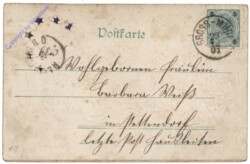 Postkarte
GROSS-
Wohlgebornen Fräulein
Barbara Weiß
in Pettendorf
letzte Post Hausleiten